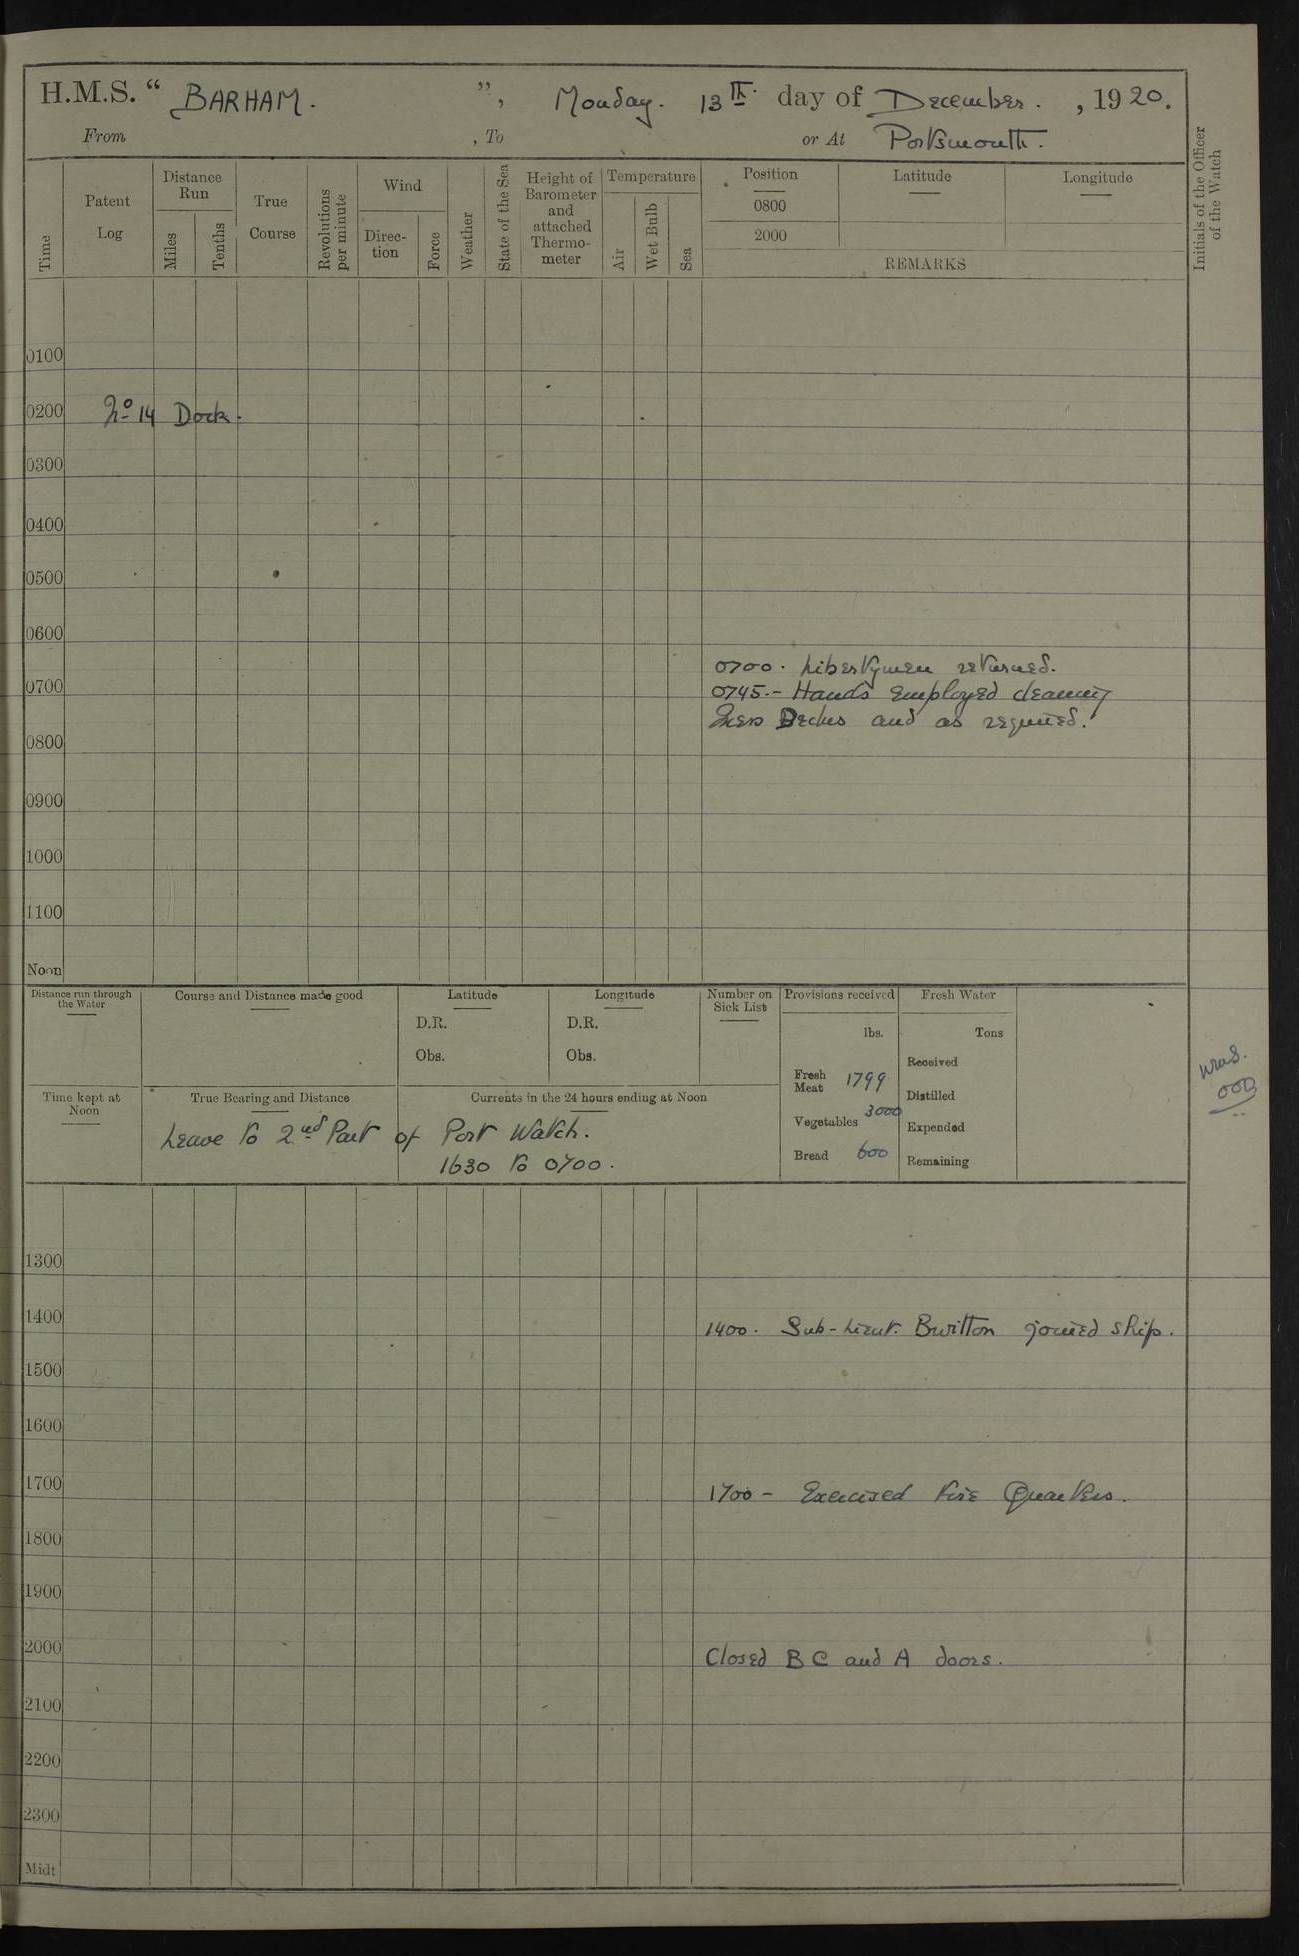 H.M.S. “ BARHAM. ”, Monday. 13th. day of December. , 1920.
From , To or At Portsmouth.
Time
Patent Log
Distance Run
Miles
Tenths
True Course
Revolutions per minute
Wind
Direc-tion
Force
Weather
State of the Sea
Height of Barometer and attached Thermo-meter
Temperature
Air
Wet Bulb
Sea
Position Latitude Longitude
0800
2000
REMARKS
Initials of the Officer of the Watch
0100
0200 No 14 Dock.
0300
0400
0500
0600
0700. Libertymen returned.
0700
0745.- Hands employed cleaning
Mess Decks and as required.
0800
0900
1000
1100
Noon
Distance run through the Water
Course and Distance made good
Latitude
D.R.
Obs.
Longitude
D.R.
Obs.
Number on Sick List
Provisions received
lbs.
Fresh Meat 1799
Vegetables 3000
Bread 600
Fresh Water
Tons
Received
Distilled
Expended
Remaining
OOD
Time kept at Noon
True Bearing and Distance
Currents in the 24 hours ending at Noon
Leave to 2nd Part of Port Watch.
1630 to 0700.
1300
1400
1400. Sub-Lieut. joined ship.
1500
1600
1700
1700 - Exercised Fire Quarters.
1800
1900
2000
Closed B C and A doors.
2100
2200
2300
Midt